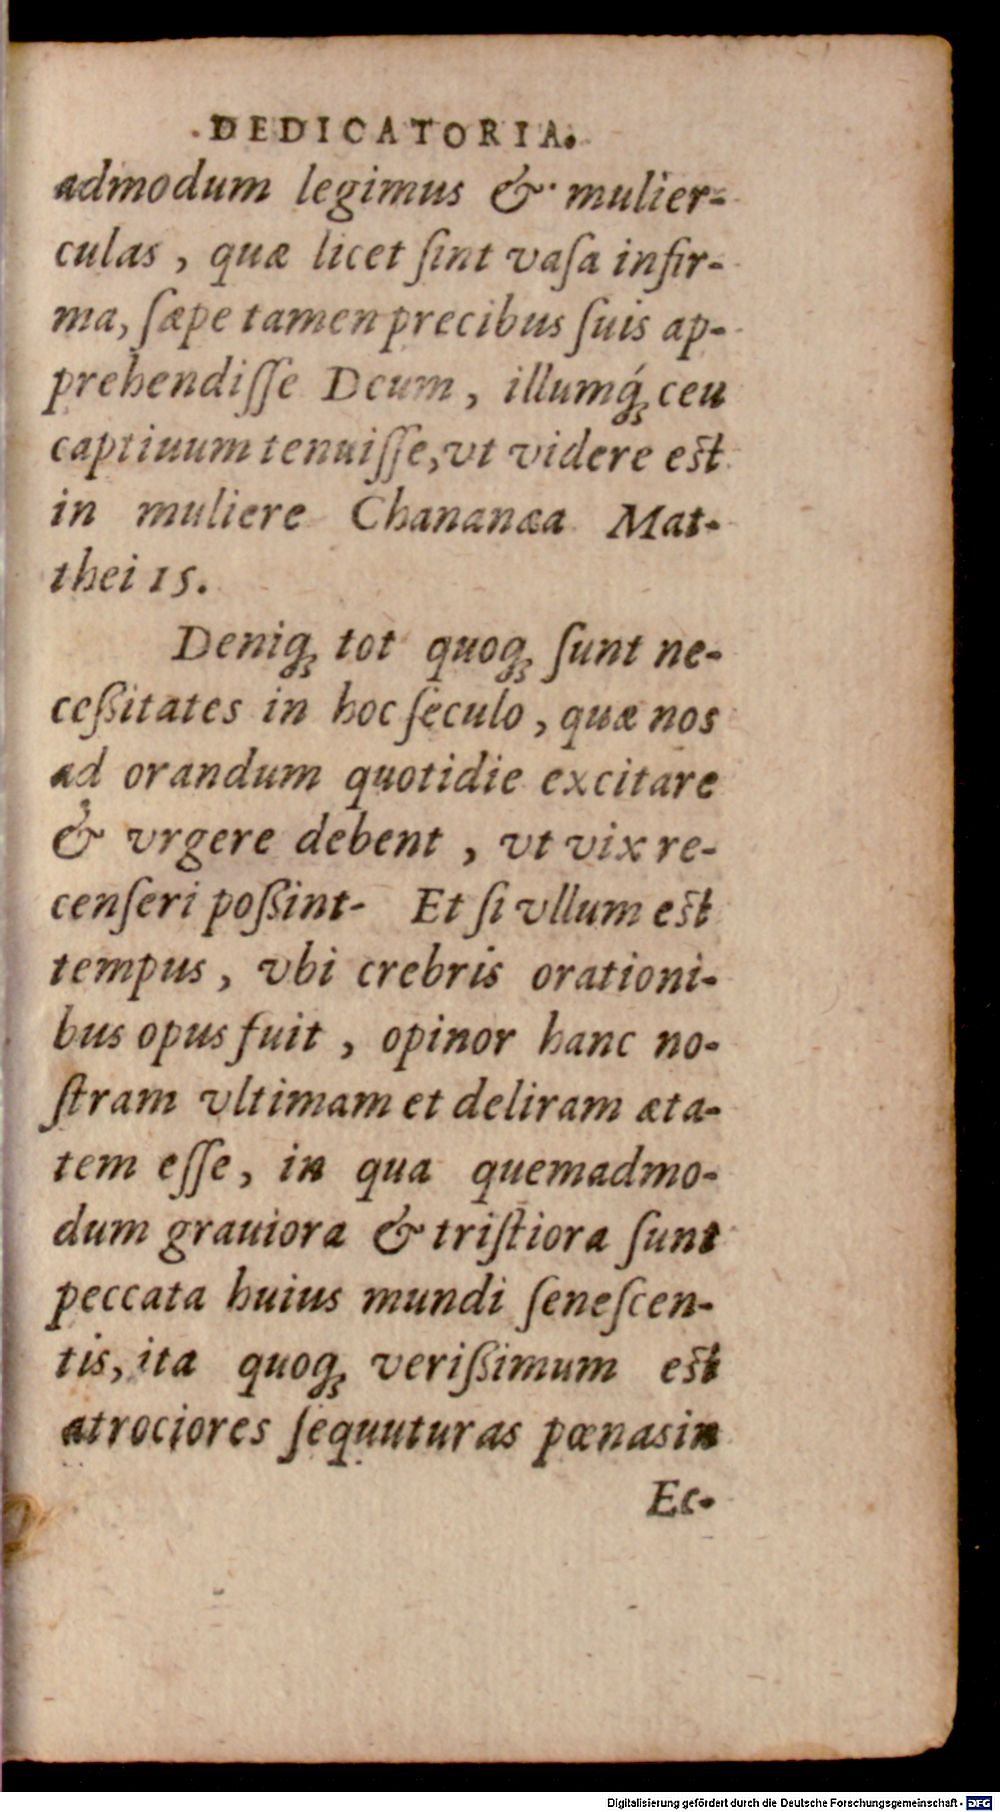 DEDICATORIA.
admodum legimus & mulier-
culas, quæ licet ſint vaſa infir-
ma, ſæpe tamen precibus ſuis ap-
prehendiſſe Deum, illumq́ꝫ ceu
captiuum tenuiſſe, vt videre eſt
in muliere Chananæa Mat-
thei 15.
Deniqꝫ tot quoqꝫ ſunt ne-
ceßitates in hoc ſeculo, quæ nos
ad orandum quotidie excitare
& vrgere debent, vt vix re-
cenſeri poßint- Et ſi vllum eſt
tempus, vbi crebris orationi-
bus opus fuit, opinor hanc no-
ſtram vltimam et deliram æta-
tem eſſe, in qua quemadmo-
dum grauiora & triſtiora ſunt
peccata huius mundi ſeneſcen-
tis, ita quoqꝫ verißimum eſt
atrociores ſequuturas pœnas in
Ec-
Digitalisierung gefördert durch die Deutsche Forschungsgemeinschaft - DFG